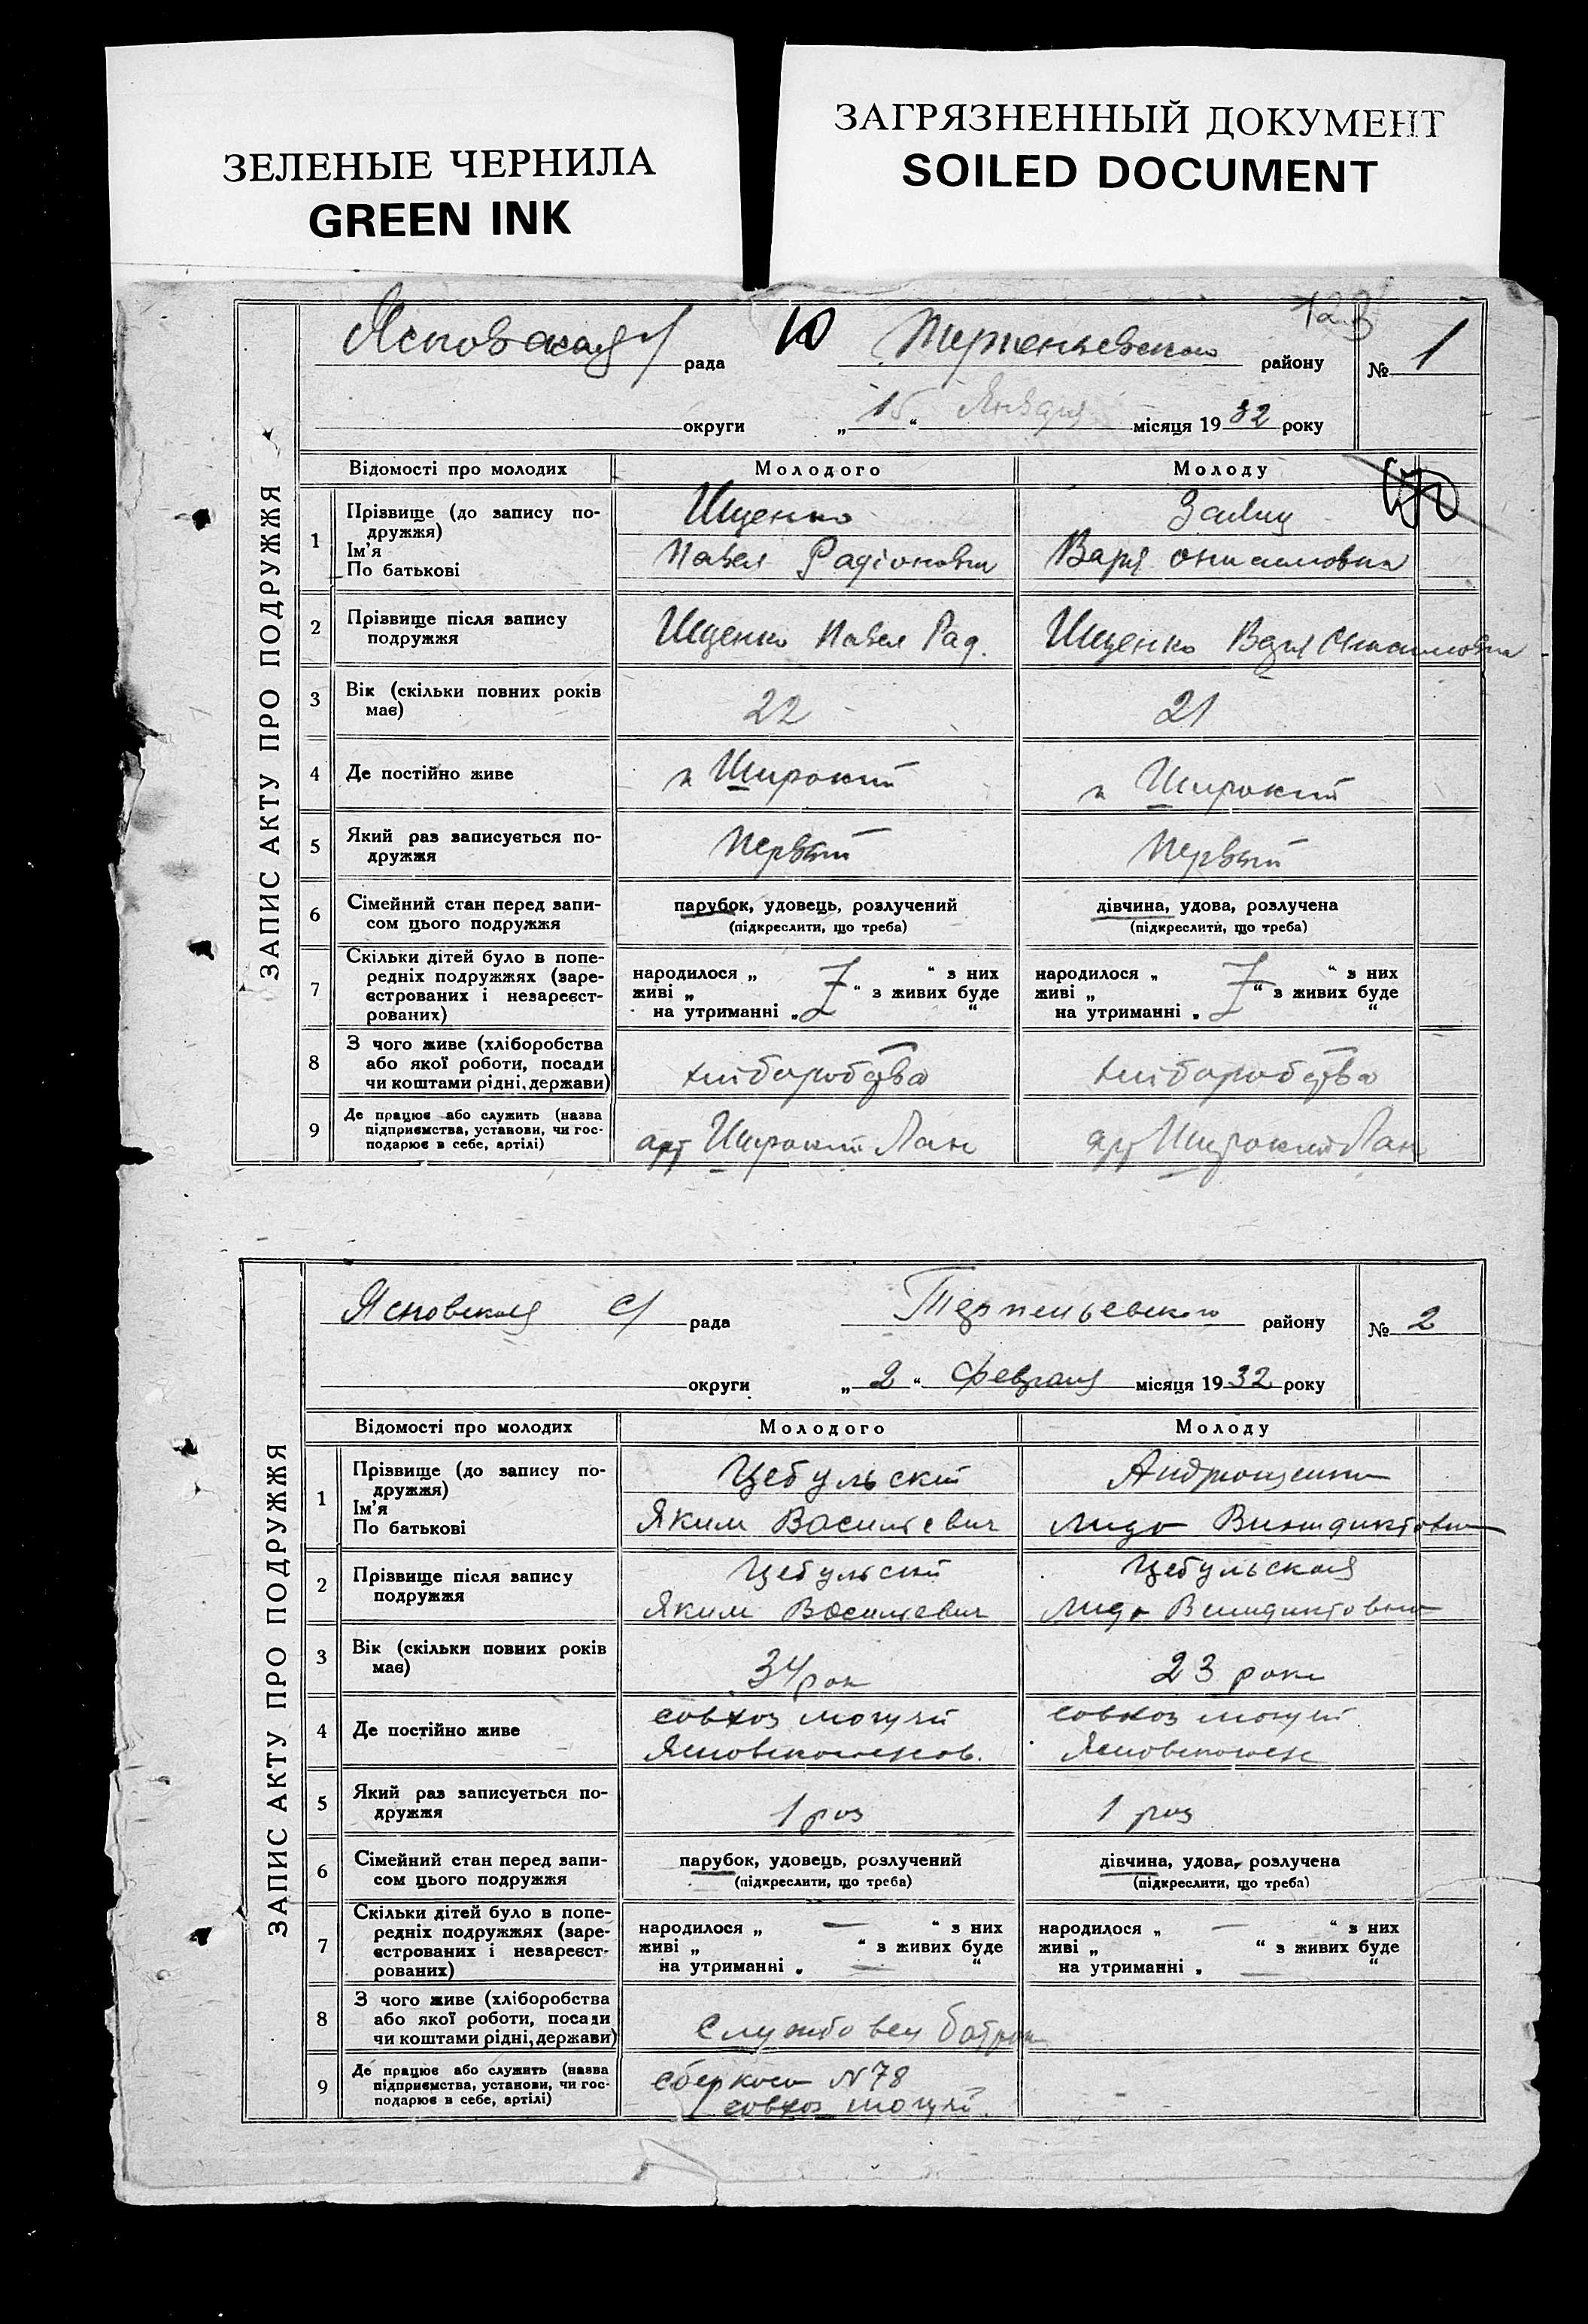 ЗЕЛЕНЫЕ ЧЕРНИЛА
GREEN INK
ЗАГРЯЗНЕННЫЙ ДОКУМЕНТ
SOILED DOCUMENT
123
ЗАПИС АКТУ ПРО ПОДРУЖЖЯ
Ясновская рада району № 1
округи „ 15 “ Января місяця 1932 року
Відомості про молодих Молодого Молоду
1 Прізвище (до запису по-
дружжя)
Ім'я
По батькові
Ищенко
Павел Радіонович
Варя
2 Прізвище після запису
подружжя
Ищенко Павел Рад.
Ищенко Варя
3 Вік (скільки повних років
має)
22
21
4 Де постійно живе
п Широкий
п Широкий
5 Який раз записується по-
дружжя
Первый
Первый
6 Сімейний стан перед запи-
сом цього подружжя
парубок, удовець, розлучений
(підкреслити, що треба)
дівчина, удова, розлучена
(підкреслити, що треба)
7 Скільки дітей було в попе-
редніх подружжях (заре-
єстрованих і незареєст-
рованих)
народилося „ “ з них
живі „ “ з живих буде
на утриманні „ “
народилося „ “ з них
живі „ “ з живих буде
на утриманні „ “
8 З чого живе (хліборобства
або якої роботи, посади
чи коштами рідні, держави)
хліборобства
хліборобства
9 Де працює або служить (назва
підприємства, установи, чи гос-
подарює в себе, артілі)
арт Широкий Лан
арт Широкий Лан
ЗАПИС АКТУ ПРО ПОДРУЖЖЯ
Ясновская с/ рада Терпеньевского району № 2
округи „ 2 “ февраля місяця 1932 року
Відомості про молодих Молодого Молоду
1 Прізвище (до запису по-
дружжя)
Ім'я
По батькові
Цебульскій
Яким Васильевич
Андрющенко
Лида
2 Прізвище після запису
подружжя
Цебульскій
Яким Васильевич
Цебульская
Лида
3 Вік (скільки повних років
має)
34 рок
23 роки
4 Де постійно живе
совхоз могучій
совхоз могучій
5 Який раз записується по-
дружжя
1 раз
1 раз
6 Сімейний стан перед запи-
сом цього подружжя
парубок, удовець, розлучений
(підкреслити, що треба)
дівчина, удова, розлучена
(підкреслити, що треба)
7 Скільки дітей було в попе-
редніх подружжях (заре-
єстрованих і незареєст-
рованих)
народилося „ — “ з них
живі „ “ з живих буде
на утриманні „ — “
народилося „ — “ з них
живі „ “ з живих буде
на утриманні „ — “
8 З чого живе (хліборобства
або якої роботи, посади
чи коштами рідні, держави)
9 Де працює або служить (назва
підприємства, установи, чи гос-
подарює в себе, артілі)
сберкаса N 78
совхоз могучій.